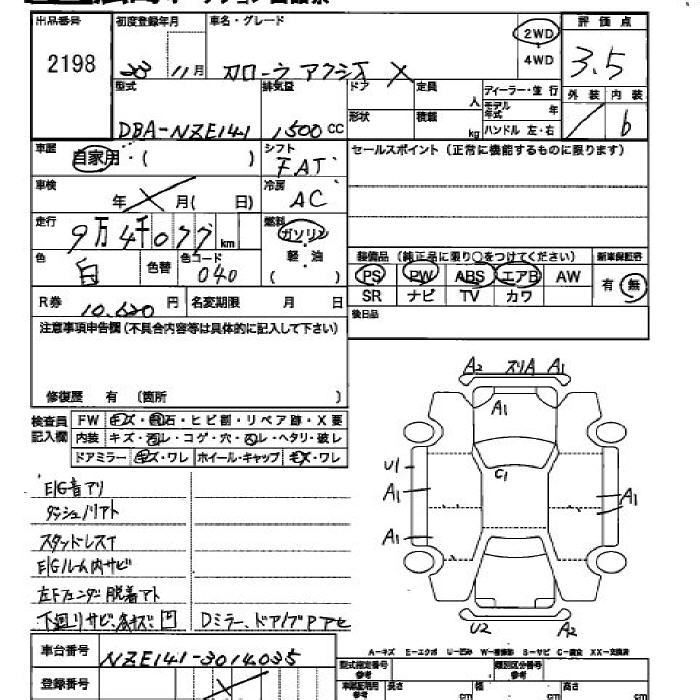 出品番号 初度登録年月 車名・グレード 評価点
2198 23 11月 カローラ アクシオ X 2WD 4WD 3.5
型式 排気量 ドア 定員 人 ディーラー・並行 外装 内装
DBA-NZE141 1500cc 形状 積載 kg モデル年式 年 ハンドル 左・右 b
車歴 自家用・( ) シフト FAT セールスポイント (正常に機能するものに限ります)
車検 年 月( 日) 冷房 AC
走行 9万4千077km 燃料 ガソリン 軽・油 ( )
色 白 色替 色コード 040
装備品 (純正品に限り○をつけてください) 新車保証書
PS PW ABS エアB AW 有・無
SR ナビ TV カワ
R券 10,620円 名変期限 月 日 後日品
注意事項申告欄(不具合内容等は具体的に記入して下さい)
修復歴 有 (箇所 )
検査員記入欄 FW キズ・飛石・ヒビ割・リペア跡・X要
内装 キズ・汚レ・コゲ・穴・スレ・ヘタリ・破レ
ドアミラー キズ・ワレ ホイール・キャップ キズ・ワレ
A2 スリA A1
A1
C1
U1
A1 A1
A1
U2 A2
E/G音アリ
ダッシュノリアト
スタッドレスT
E/Gルーム内サビ
左Fフェンダー脱着アト
下廻リサビ、
Dミラー、ドア
A-キズ E-エクボ U-凹ミ W-補修跡 S-サビ C-腐食 XX-交換済
車台番号 NZE141-3014035
登録番号
型式指定番号 類別区分番号
長さ cm 幅 cm 高さ cm